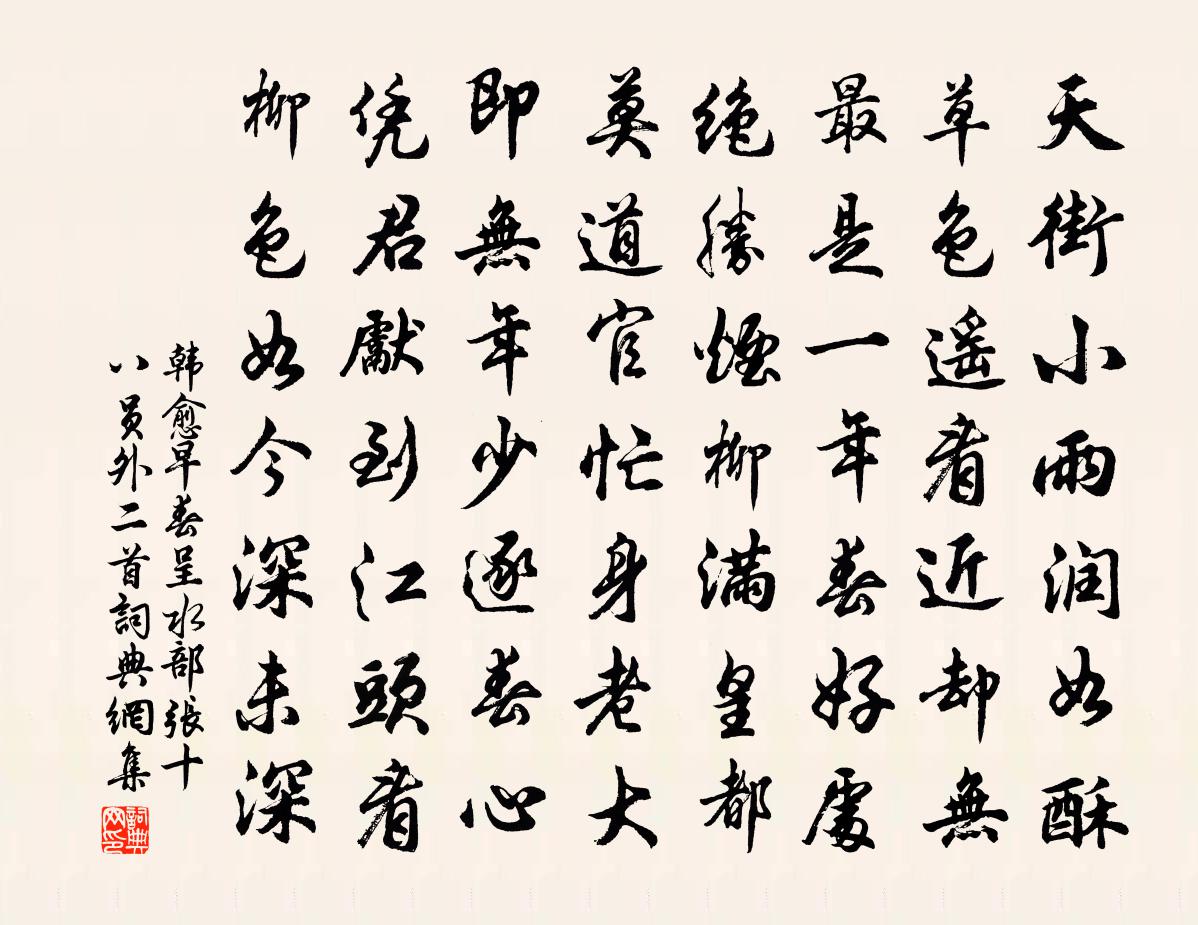 天街小雨润如酥
草色遥看近却無
最是一年春好處
绝勝煙柳满皇都
莫道官忙身老大
即無年少逐春心
凭君獻到江頭看
柳色如今深未深
韩愈早春呈水部張十
八員外二首詞典網集
詞典
网印